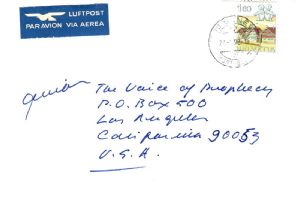 LUFTPOST
PAR AVION VIA AEREA
180
HELVETIA
avion
The Voice of Prophecy
P.O. Box 500
Los Angeles
California 90053
U.S.A.